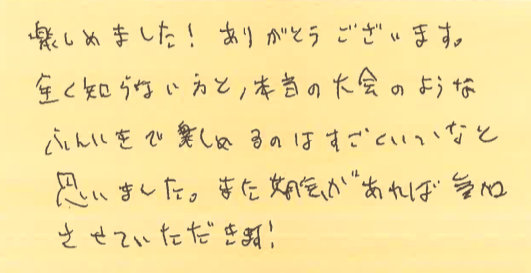 楽しめました！ありがとうございます。
全く知らない方と,本当の大会のような
ふんいきで楽しめるのはすごくいいなと
思いました。また機会があれば参加
させていただきます!